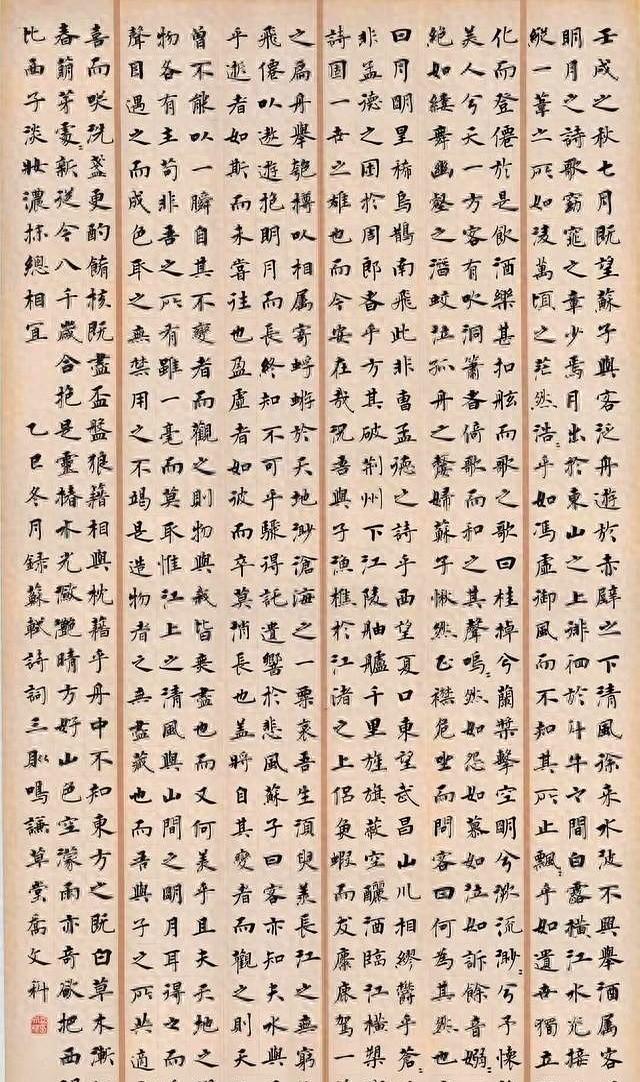 壬戌之秋七月既望蘇子與客泛舟遊於赤壁之下清風徐来水波不興舉酒属客
明月之詩歌窈窕之章少焉月出於東山之上徘徊於斗牛之間白露橫江水光接
縱一葦之所如凌萬頃之茫然浩〻乎如馮虛御風而不知其所止飄〻乎如遺世獨立
化而登僊於是飲酒樂甚扣舷而歌之歌曰桂棹兮蘭槳擊空明兮泝流渺〻兮予懷
美人兮天一方客有吹洞簫者倚歌而和之其聲嗚〻然如怨如慕如泣如訴餘音嫋〻
絶如縷舞幽壑之潛蛟泣孤舟之嫠婦蘇子愀然正襟危坐而問客曰何為其然也
曰月明星稀烏鵲南飛此非曹孟德之詩乎西望夏口東望武昌山川相繆鬱乎蒼〻
非孟德之困於周郎者乎方其破荆州下江陵舳艫千里旌旗蔽空釃酒臨江橫槊
詩固一世之雄也而今安在哉況吾與子漁樵於江渚之上侶魚蝦而友麋鹿駕一
之扁舟舉匏樽以相属寄蜉蝣於天地渺滄海之一粟哀吾生須臾羨長江之無窮
飛僊以遨遊抱明月而長終知不可乎驟得託遺響於悲風蘇子曰客亦知夫水與
乎逝者如斯而未嘗往也盈虛者如彼而卒莫消長也蓋將自其變者而觀之則天
曾不能以一瞬自其不變者而觀之則物與我皆無盡也而又何羨乎且夫天地之
物各有主苟非吾之所有雖一毫而莫取惟江上之清風與山間之明月耳得之而
聲目遇之而成色取之無禁用之不竭是造物者之無盡藏也而吾與子之所共適
喜而咲洗盞更酌餚核既盡盃盤狼籍相與枕藉乎舟中不知東方之既白草木漸
春萌芽處〻新從今八千歲合抱是靈椿水光瀲灧晴方好山色空濛雨亦奇欲把西
比西子淡妝濃抹總相宜 乙巳冬月録蘇軾詩詞三鳴謙草堂喬文科